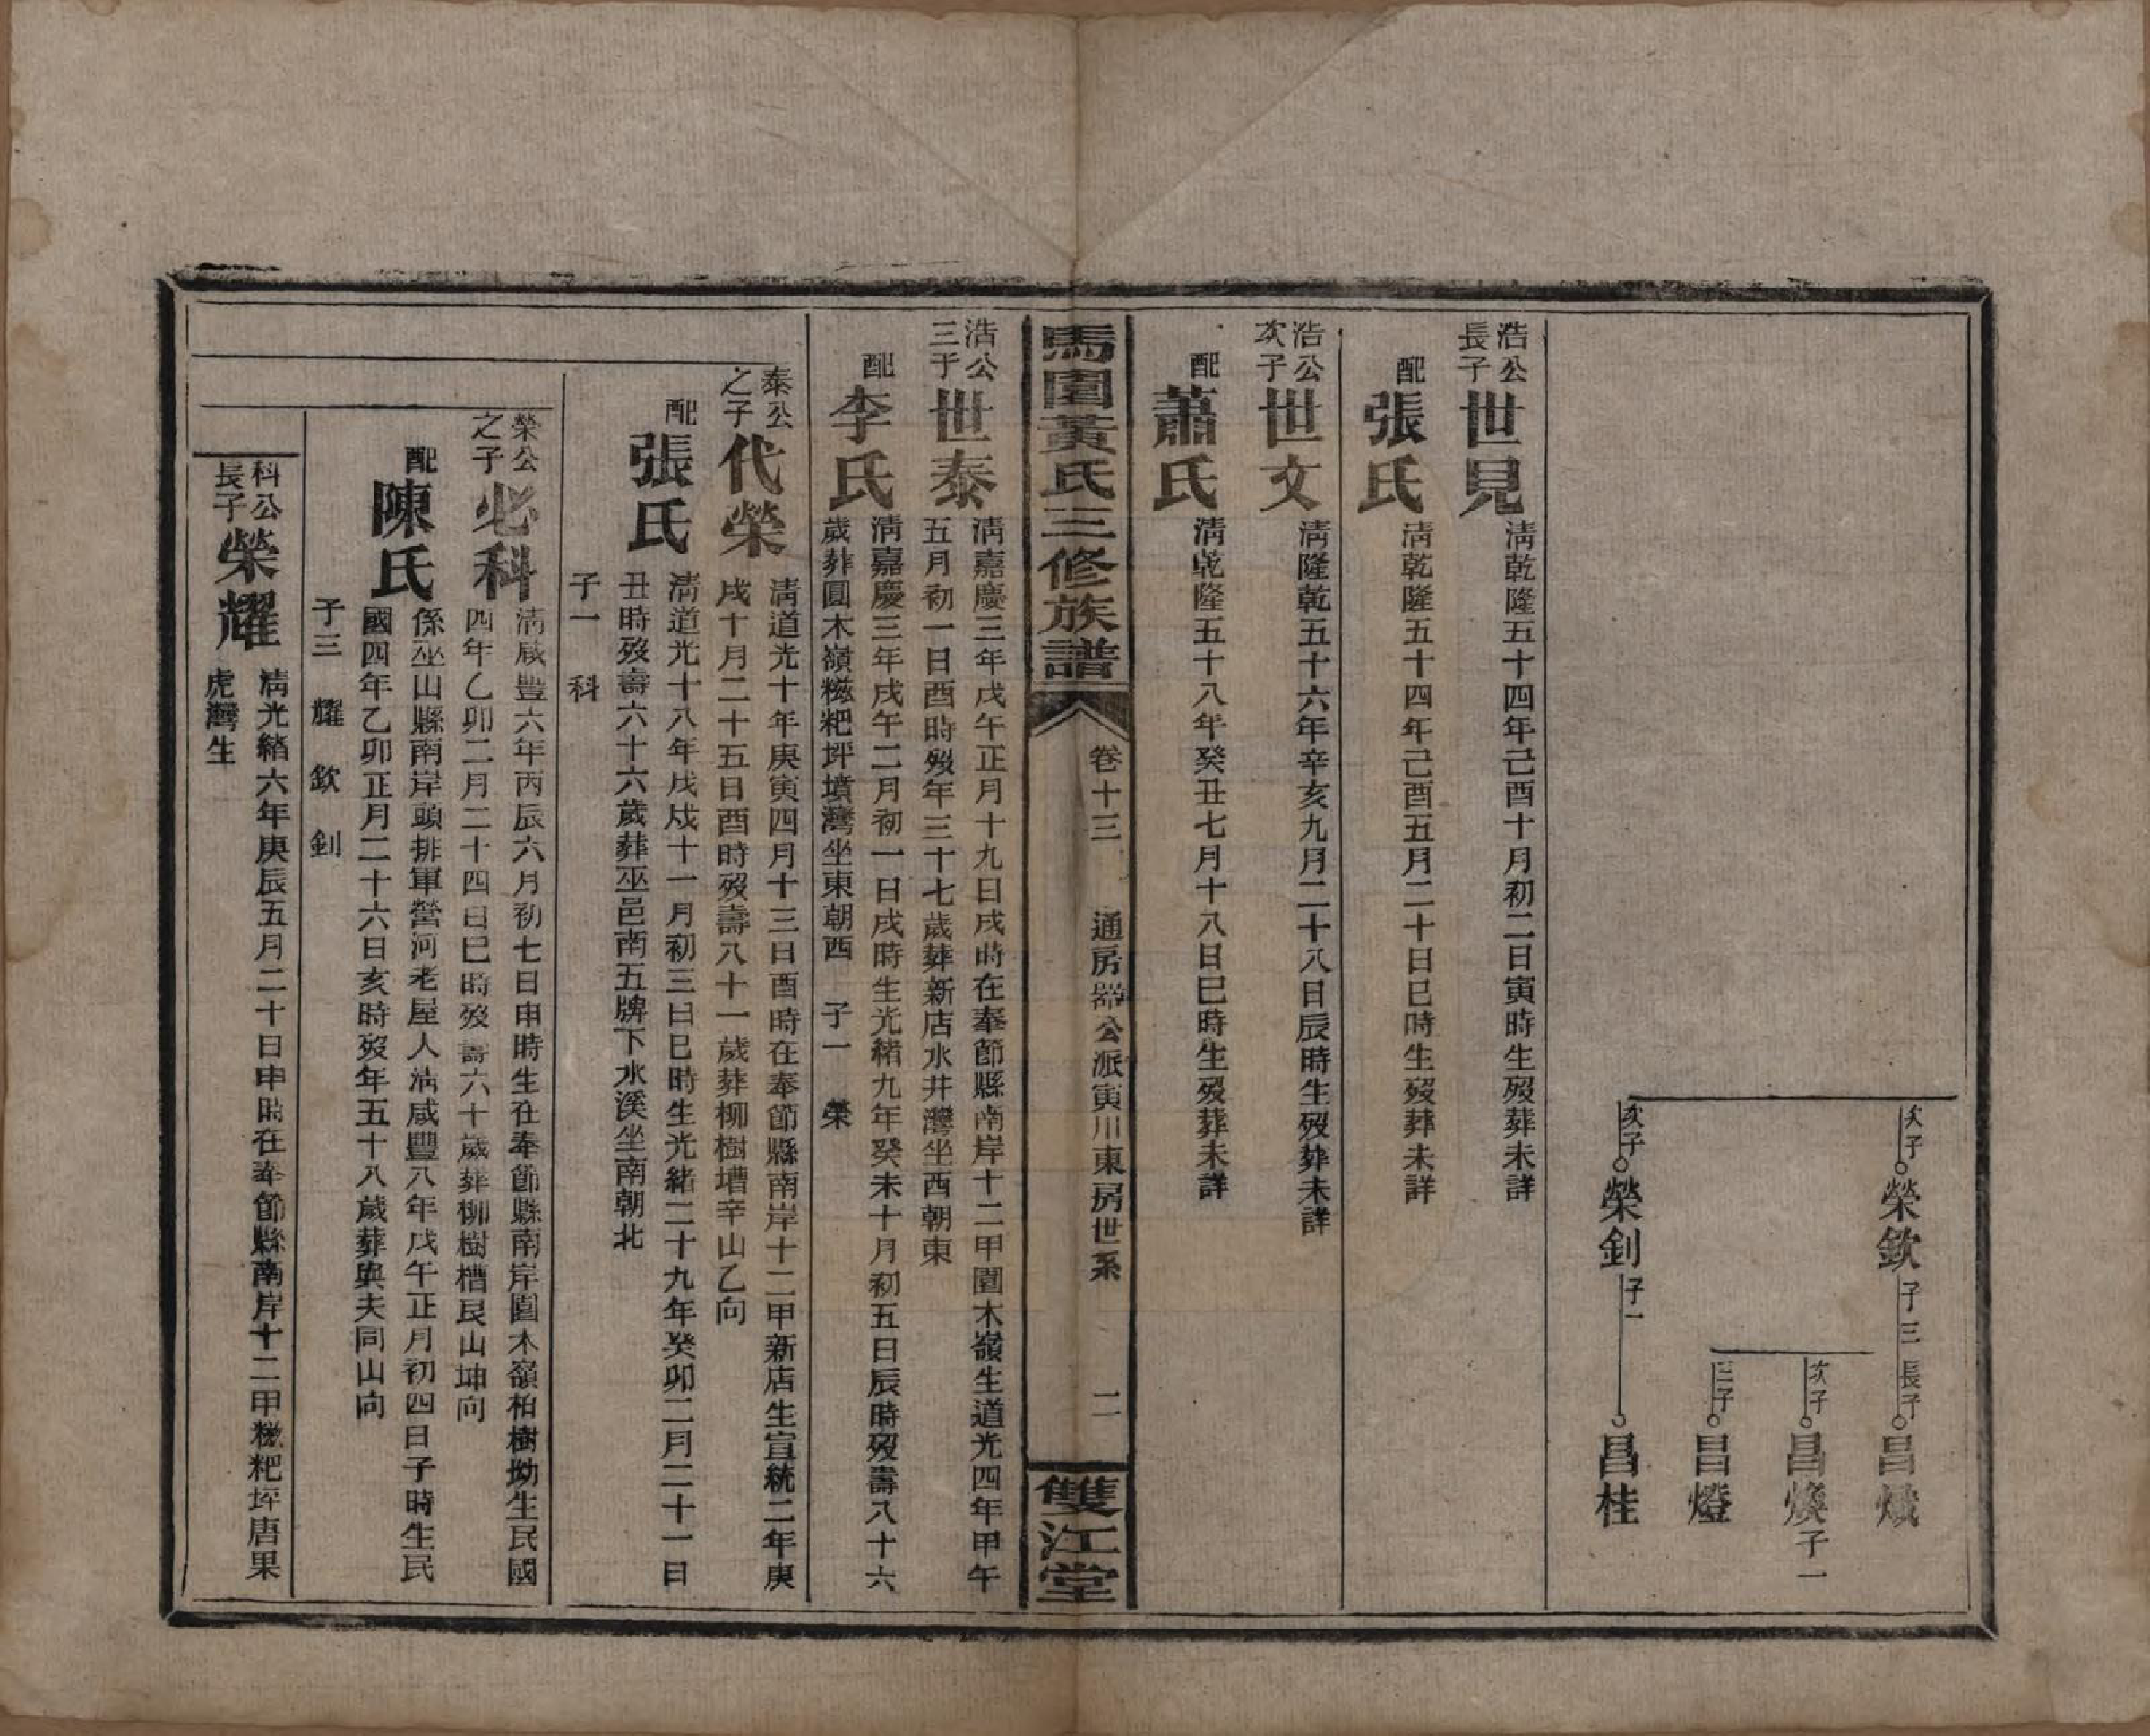 次子 榮欽 子三 長子 昌熾
次子 昌煥 子一
三子 昌燈
次子 榮釗 子一 昌桂
浩公長子 世見 淸乾隆五十四年己酉十月初二日寅時生歿葬未詳
配 張氏 淸乾隆五十四年己酉五月二十日巳時生歿葬未詳
浩公次子 世文 淸隆乾五十六年辛亥九月二十八日辰時生歿葬未詳
配 蕭氏 淸乾隆五十八年癸丑七月十八日巳時生歿葬未詳
馬圍黃氏三修族譜 卷十三 通房器公派寅川東房世系 二 雙江堂
浩公三子 世泰 淸嘉慶三年戊午正月十九日戌時在奉節縣南岸十二甲圓木嶺生道光四年甲午
五月初一日酉時歿年三十七歲葬新店水井灣坐西朝東
配 李氏 淸嘉慶三年戊午二月初一日戌時生光緒九年癸未十月初五日辰時歿壽八十六
歲葬圓木嶺糍粑坪墳灣坐東朝西 子一 榮
泰公之子 代榮 淸道光十年庚寅四月十三日酉時在奉節縣南岸十二甲新店生宣統二年庚
戌十月二十五日酉時歿壽八十一歲葬柳樹墆辛山乙向
配 張氏 淸道光十八年戊戌十一月初三日巳時生光緒二十九年癸卯二月二十一日
丑時歿壽六十六歲葬巫邑南五牌下水溪坐南朝北
子一 科
榮公之子 必科 淸咸豐六年丙辰六月初七日申時生在奉節縣南岸圓木嶺柏樹坳生民國
四年乙卯二月二十四日巳時歿壽六十歲葬柳樹槽艮山坤向
配 陳氏 係巫山縣南岸頭排軍營河老屋人淸咸豐八年戊午正月初四日子時生民
國四年乙卯正月二十六日亥時歿年五十八歲葬與夫同山向
子三 耀 欽 釗
科公長子 榮耀 淸光緒六年庚辰五月二十日申時在奉節縣南岸十二甲糍粑坪唐果
虎灣生